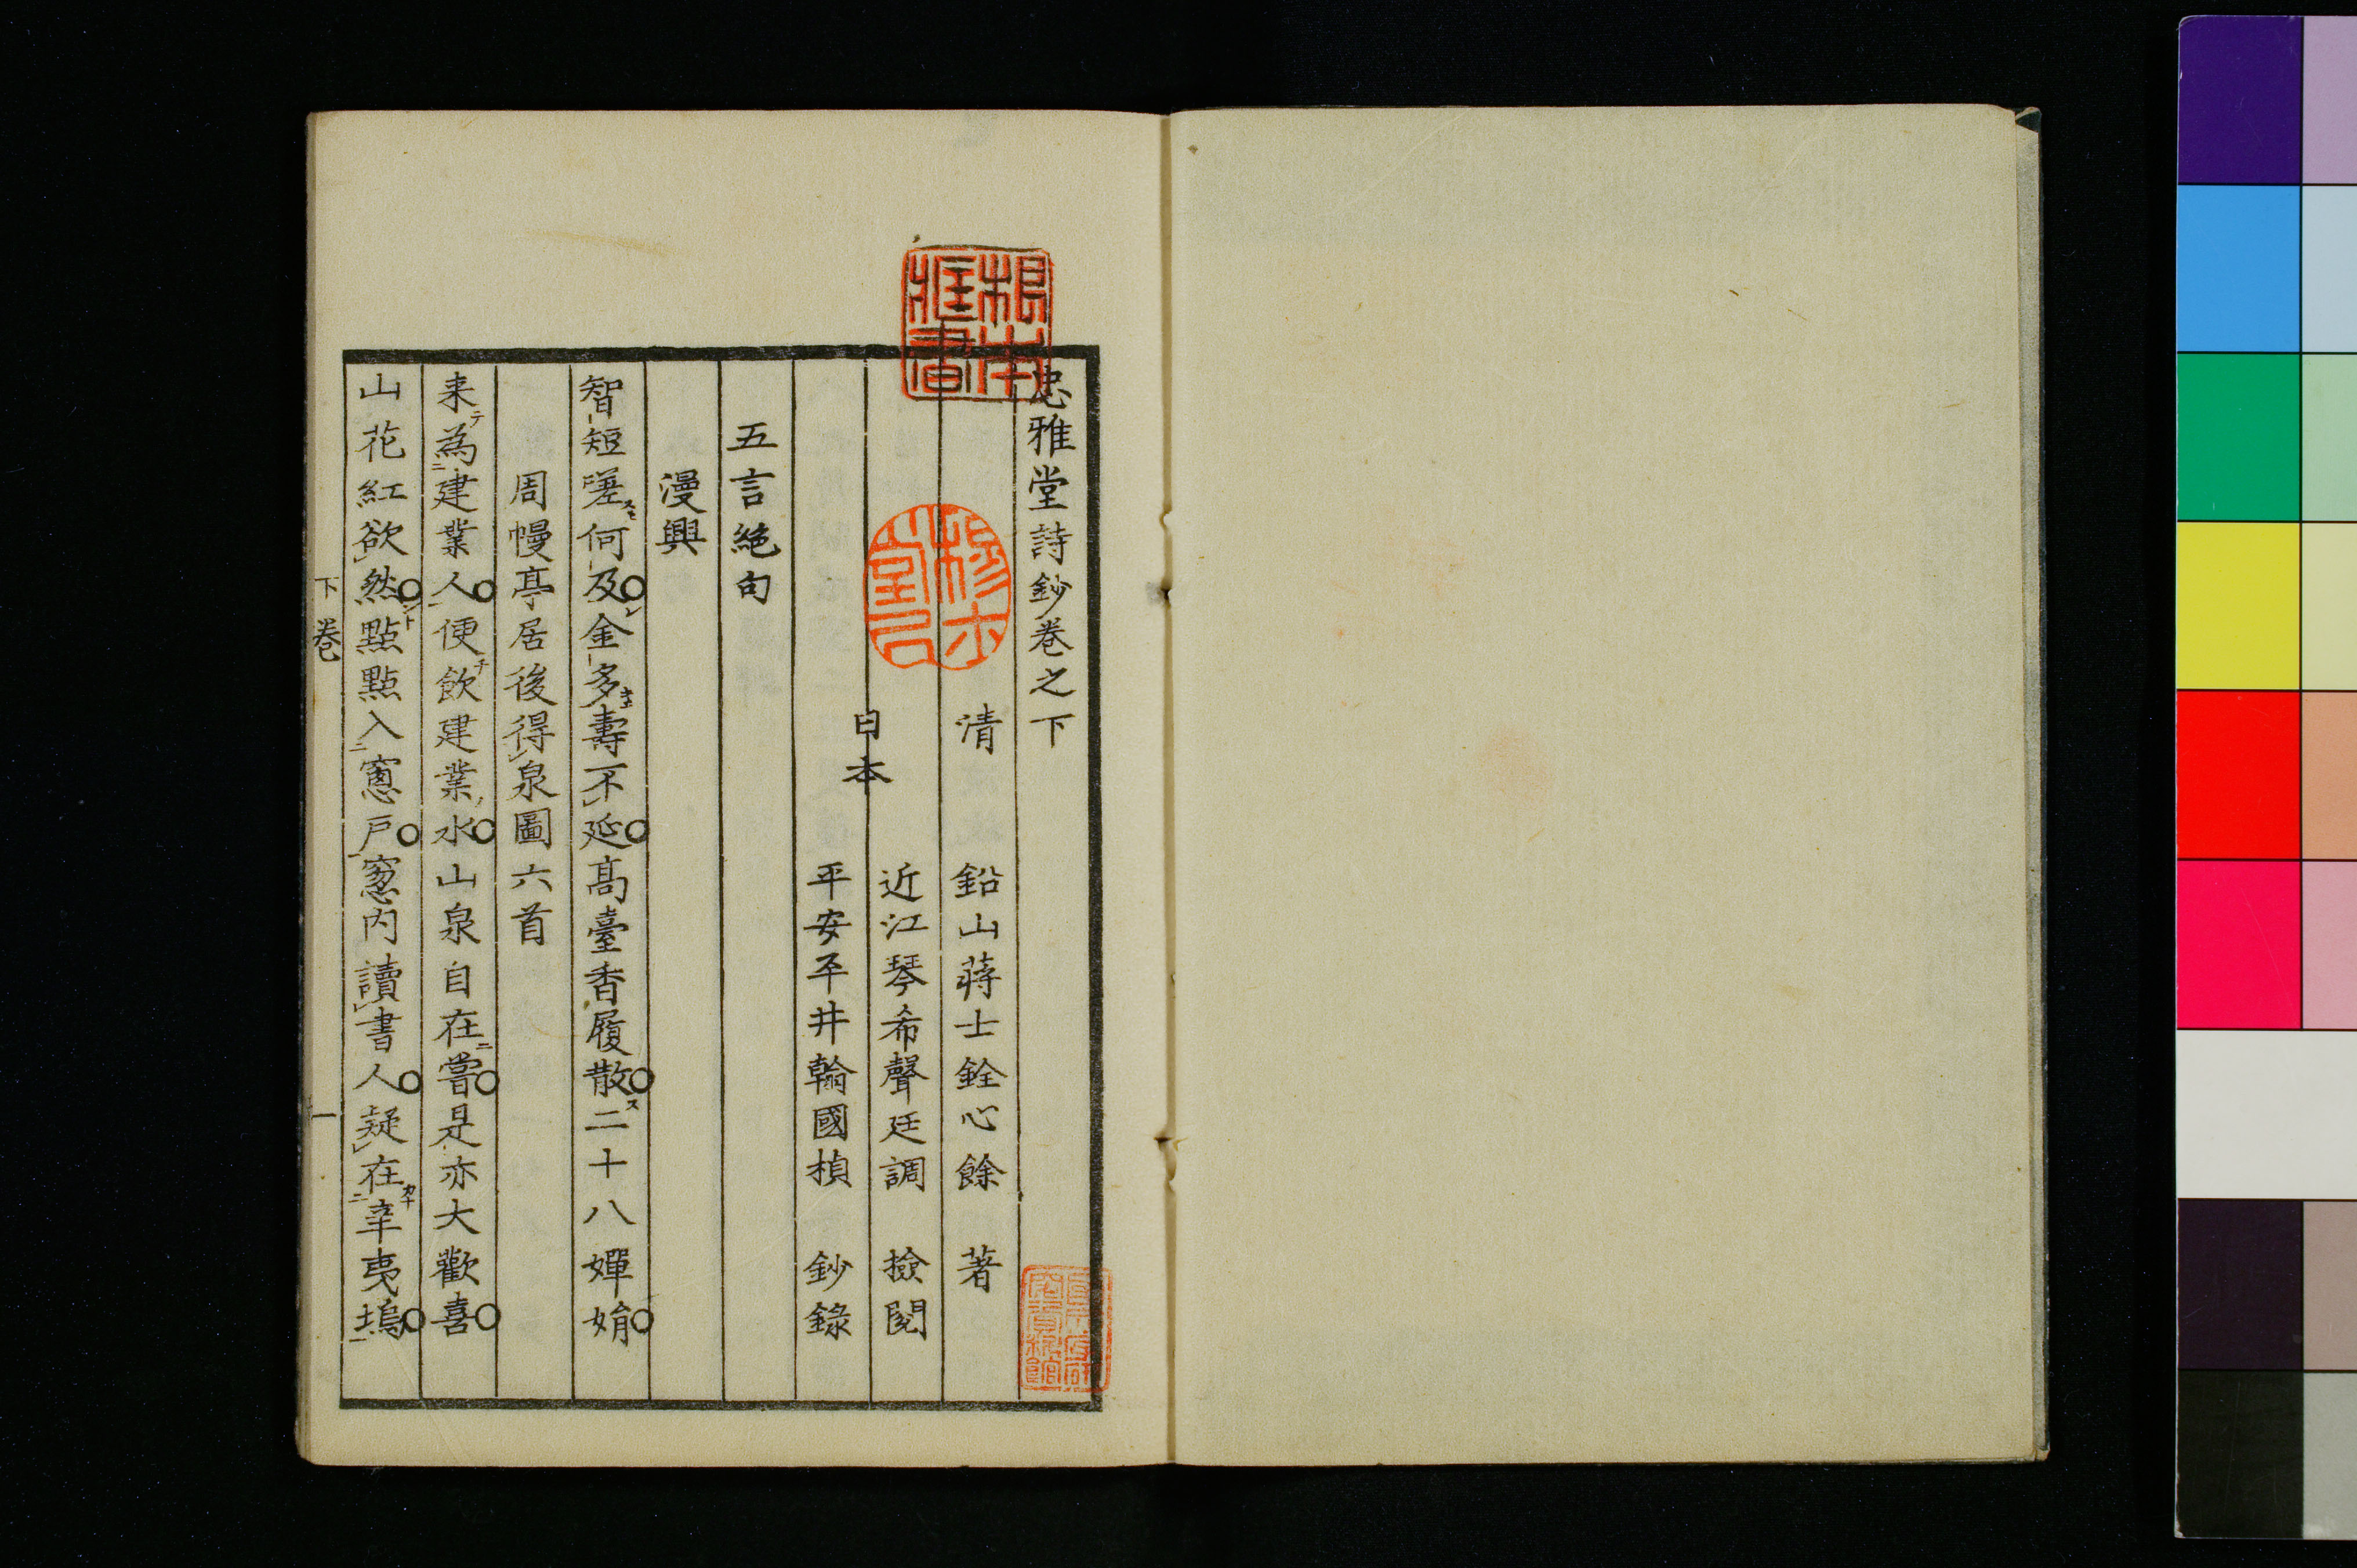 忠雅堂詩鈔卷之下
清　鉛山蔣士銓心餘　著
日本
近江琴希聲廷調　撿閱
平安平井翰國楨　鈔錄
五言絕句
漫興
智短嗟何及金多壽不延高臺香履散二十八嬋娟
周幔亭居後得泉圖六首
来為建業人便飲建業水山泉自在嘗是亦大歡喜
山花紅欲然點點入窻戶窻内讀書人疑在辛夷塢
下卷　一